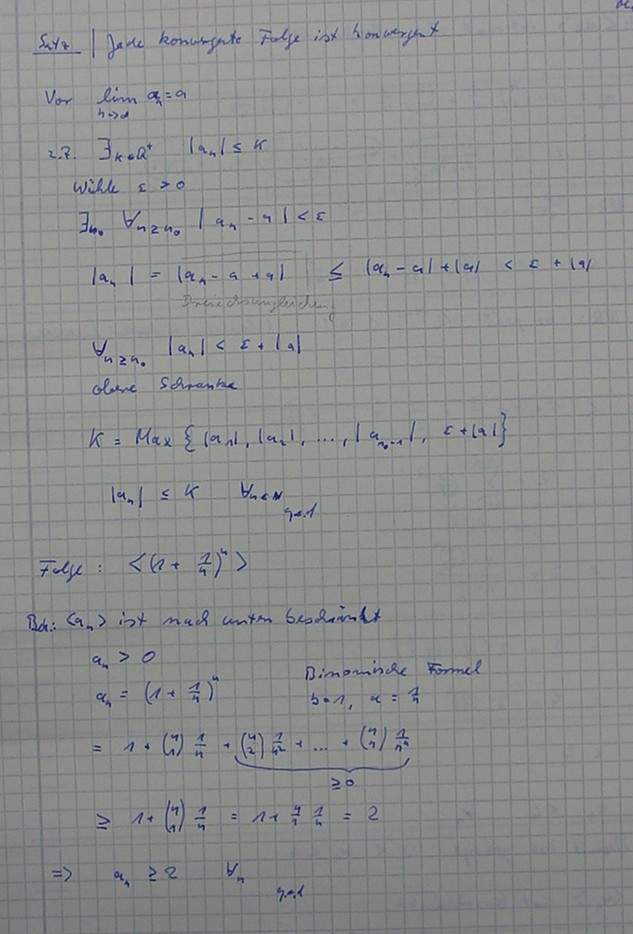 Satz | Jede konvergente Folge ist konvergent
Vor lim n→∞ aₙ = a
z.Z. ∃ K∈ℚ⁺ |aₙ| ≤ K
Wähle ε > 0
∃ n₀ ∀ n≥n₀ |aₙ - a| < ε
|aₙ| = |aₙ - a + a| ≤ |aₙ - a| + |a| < ε + |a|
Dreiecksungleichung
∀ n≥n₀ |aₙ| < ε + |a|
obere Schranke
K = Max {|a₁|, |a₂|, ..., |a_{n₀-1}|, ε + |a|}
|aₙ| ≤ K ∀ n∈ℕ
q.e.d
Folge: <(1 + 1/n)ⁿ>
Beh.: <aₙ> ist nach unten beschränkt
aₙ > 0
Binomische Formel
aₙ = (1 + 1/n)ⁿ b=1, a = 1/n
= 1 + (n über 1) 1/n + (n über 2) 1/n² + ... + (n über n) 1/nⁿ
≥ 0
≥ 1 + (n über 1) 1/n = 1 + n/1 1/n = 2
=> aₙ ≥ 2 ∀ n
q.e.d